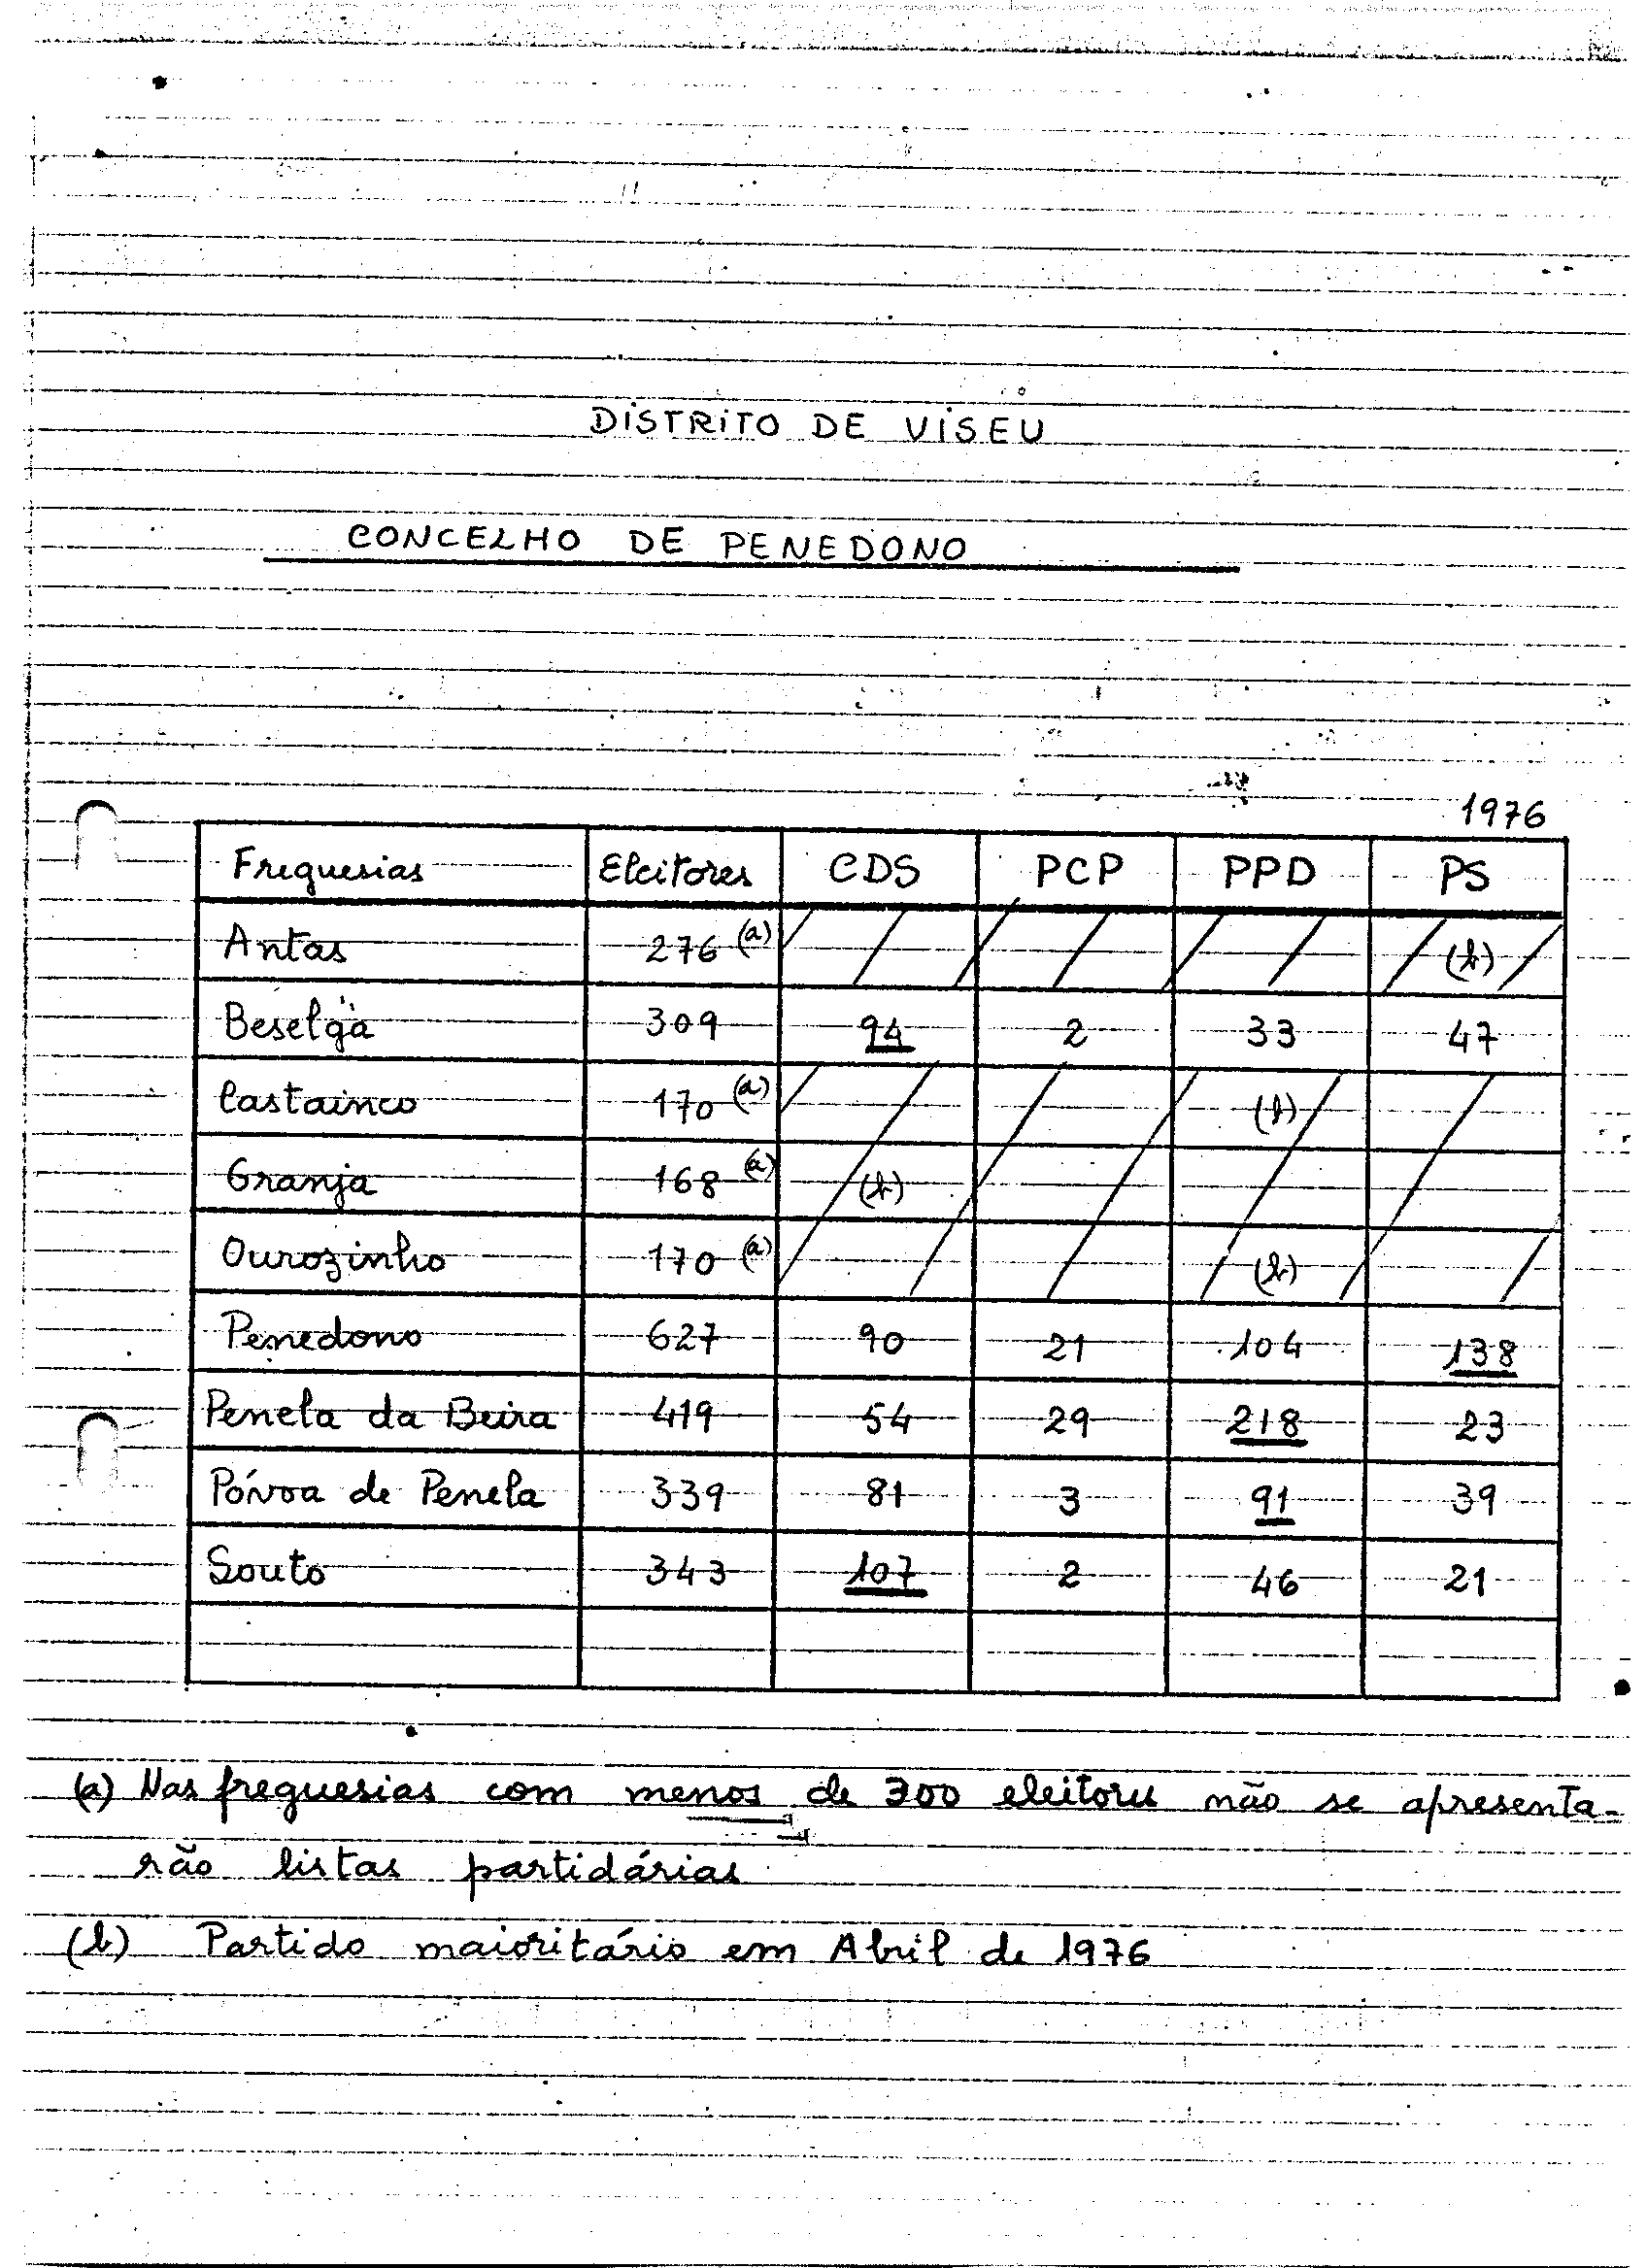 DISTRITO DE VISEU
CONCELHO DE PENEDONO
1976
Freguesias Eleitores CDS PCP PPD PS
Antas 276 (a) (b)
Beselga 309 94 2 33 47
Castainco 170 (a) (b)
Granja 168 (a) (b)
Ourozinho 170 (a) (b)
Penedono 627 90 21 104 138
Penela da Beira 419 54 29 218 23
Póvoa de Penela 339 81 3 91 39
Souto 343 107 2 46 21
(a) Nas freguesias com menos de 300 eleitores não se apresenta-
rão listas partidárias
(b) Partido maioritário em Abril de 1976